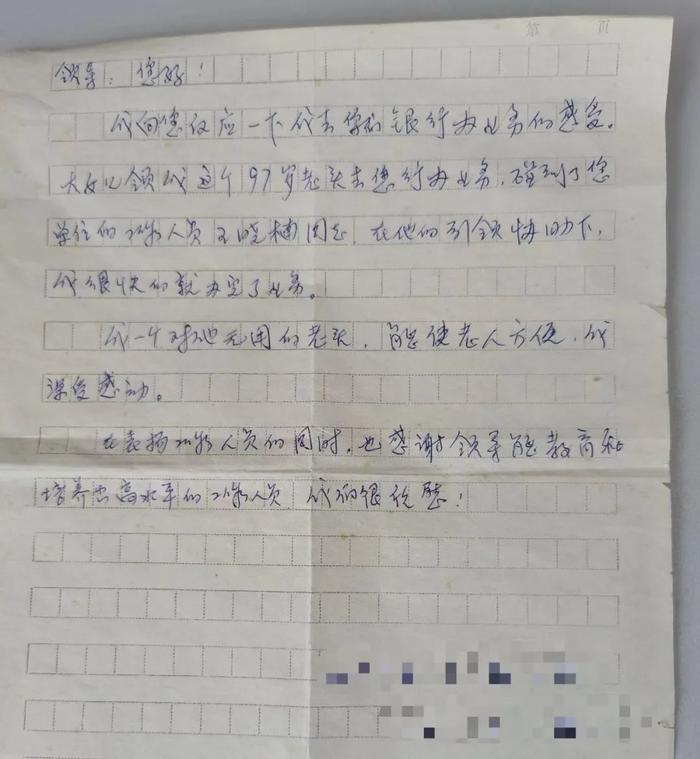 第 页
领导：您好！
我向您反应一下我去你们银行办业务的感受。
大女儿领我这个97岁老头去您行办业务，碰到了您
单位的工作人员王晓楠同志，在他的引领协助下，
我很快的就办完了业务。
我一个对他无用的老头，能使老人方便，我
深受感动。
在表扬工作人员的同时，也感谢领导能教育和
培养出高水平的工作人员，我们很优慰！